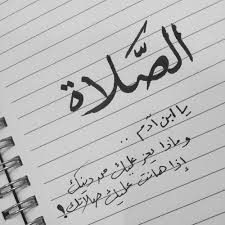 الصَّلاة
يا ابن آدم ..
وماذا يعز عليك من دينك
إذا هانت عليك صلاتك ؟